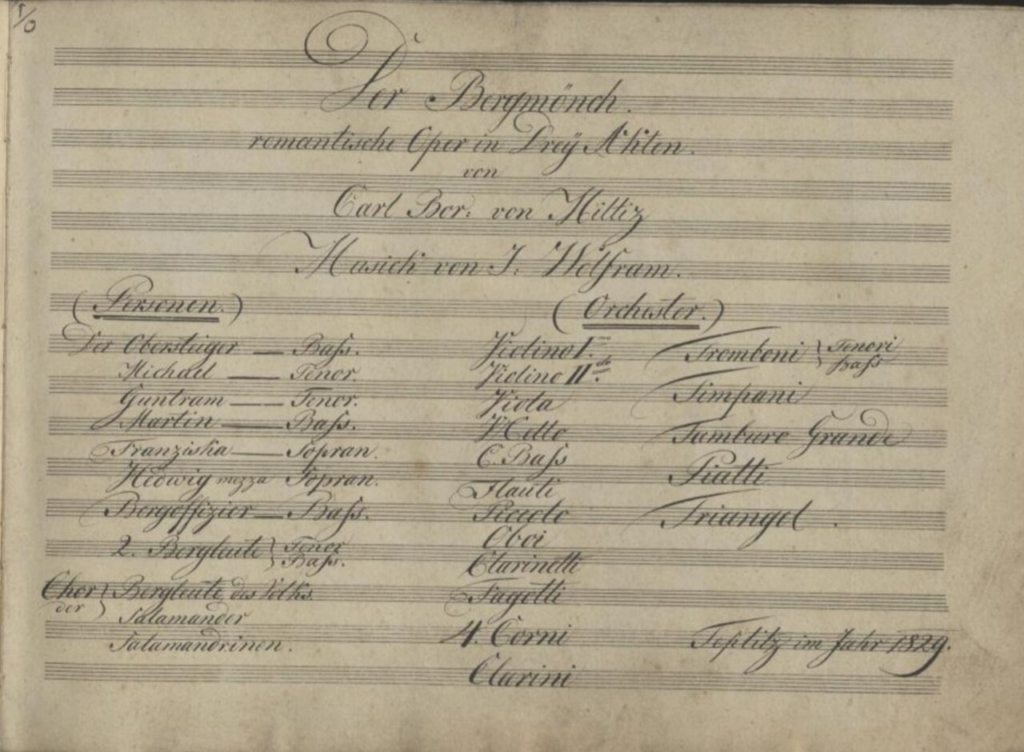 Der Bergmönch.
romantische Oper in Dreÿ Akten.
von
Carl Bor: von Miltiz
Musick von J. Wolfram.
(Personen.)
Der Obersteiger — Bass.
Michael — Tenor.
Guntram — Tenor.
Martin — Bass.
Franziska — Sopran.
Hedwig mezza Sopran.
Bergoffizier — Bass.
2. Bergleute } Tenor
Bass.
Chor der } Bergleute des Volks.
Salamander
Salamandrinen.
(Orchester.)
Violino I.mo
Violino II.do
Viola
VCello
C. Bass
Flauti
Piccolo
Oboi
Clarinetti
Fagotti
4. Corni
Clarini
Tromboni } Tenori
Bass
Timpani
Tamburo Grande
Piatti
Triangel.
Teplitz im Jahr 1829.